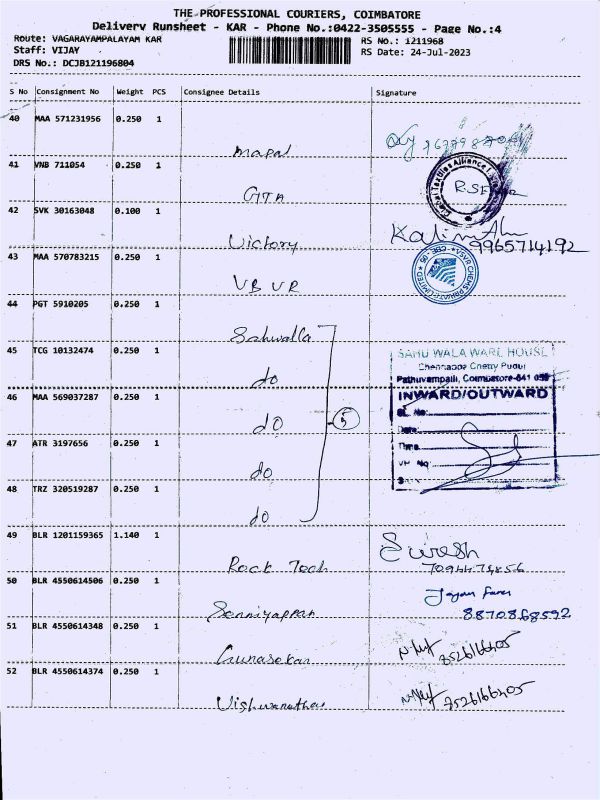 THE PROFESSIONAL COURIERS, COIMBATORE
Delivery Runsheet - KAR - Phone No.:0422-3505555 - Page No.:4
Route: VAGARAYAMPALAYAM KAR
RS No.: 1211968
Staff: VIJAY
RS Date: 24-Jul-2023
DRS No.: DCJB121196804
S No Consignment No Weight PCS Consignee Details Signature
40 MAA 571231956 0.250 1
mapal
41 VNB 711054 0.250 1
GTA
42 SVK 30163048 0.100 1
Victory 9965714192
43 MAA 570783215 0.250 1
VB VR
VSVR CHEMS PRIVATE LIMITED CBE - 05
44 PGT 5910205 0.250 1
Sahwalla
45 TCG 10132474 0.250 1
do
46 MAA 569037287 0.250 1
do
5
47 ATR 3197656 0.250 1
do
48 TRZ 320519287 0.250 1
do
SAHU WALA WARE HOUSE
Chennappa Chetty Pudur
Pathuvampalli, Coimbatore-641
INWARD/OUTWARD
SL. No:
Date
Time
49 BLR 1201159365 1.140 1
Rack Tech Suresh
50 BLR 4550614506 0.250 1
Senniyappan
8870868592
51 BLR 4550614348 0.250 1
Gunasekar
52 BLR 4550614374 0.250 1
Vishwanathan